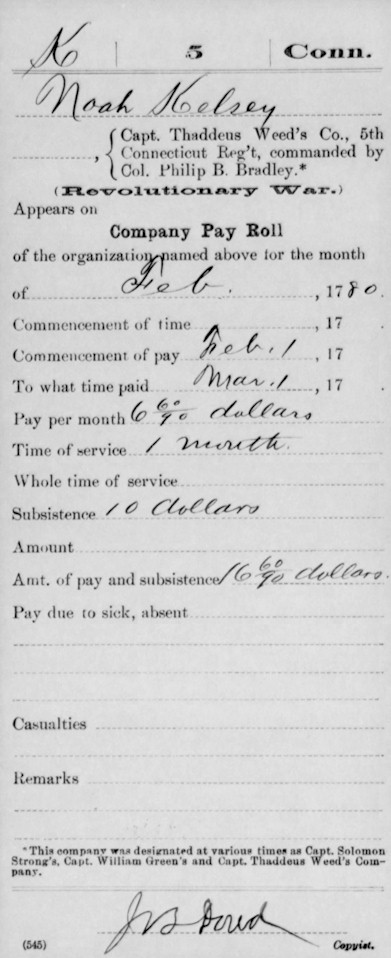 K | 5 | Conn.
Noah Kelsey
Capt. Thaddeus Weed's Co., 5th
, { Connecticut Reg't, commanded by
Col. Philip B. Bradley.*
(Revolutionary War.)
Appears on
Company Pay Roll
of the organization named above for the month
of Feb. , 1780.
Commencement of time , 17
Commencement of pay Feb. 1 , 17
To what time paid Mar. 1 , 17
Pay per month 6 60/90 dollars
Time of service 1 month.
Whole time of service
Subsistence 10 dollars
Amount
Amt. of pay and subsistence 16 60/90 dollars.
Pay due to sick, absent
Casualties
Remarks
*This company was designated at various times as Capt. Solomon
Strong's, Capt. William Green's and Capt. Thaddeus Weed's Com-
pany.
(545) Copyist.